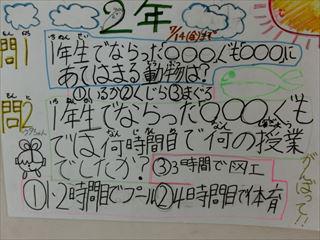 2年
7/14(金)まで
問1
1年生でならった〇〇〇ぐも〇〇〇に
あてはまる動物は?
①いるか②くじら③まぐろ
問2
1年生でならった〇〇〇ぐも
では何時間目で何の授業
でしたか?
③3時間目で図工
①1・2時間目でプール②4時間目で体育
がんばって!!